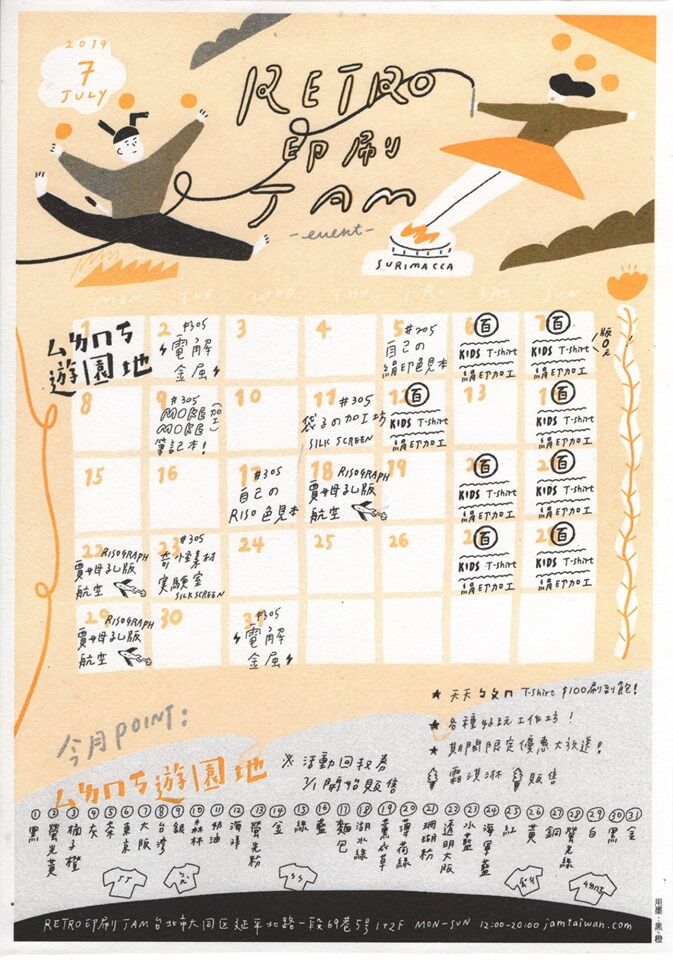 2019
7
JULY
RETRO
印刷
JAM
-event-
SURIMACCA
MON TUE WED THU FRI SAT SUN
ㄙㄌㄇㄎ
遊園地
1
2 #305
電解
金屬
3
4
5 #205
自己の
絹印色見本
6 百
KIDS T-shirt
絹印加工
7 百
KIDS T-shirt
絹印加工
版0元
8
9 #305
MORE (加工)
MORE
筆記本!
10
11 #305
袋子の加工坊
SILK SCREEN
12 百
KIDS T-shirt
絹印加工
13
14 百
KIDS T-shirt
絹印加工
15
16
17 #305
自己の
RISO色見本
18 RISOGRAPH
賈母孔版
航空
19
20 百
KIDS T-shirt
絹印加工
21 百
KIDS T-shirt
絹印加工
22 RISOGRAPH
賈母孔版
航空
23 #305
奇怪素材
実験室
SILKSCREEN
24
25
26
27 百
KIDS T-shirt
絹印加工
28 百
KIDS T-shirt
絹印加工
29 RISOGRAPH
賈母孔版
航空
30
31 #305
電解
金屬
今月POINT:
ㄙㄌㄇㄎ遊園地
※ 活動回数券
7/1 開始販售
★ 天天ㄅㄆㄇ T-shirt $100刷到飽!
★ 各種好玩工作坊!
★ 期間限定優惠大放送!
霜淇淋 販售
① 黒
② 螢光黃
③ 橘子橙
④ 灰
⑤ 茶
⑥ 東京
⑦ 大阪
⑧ 台湾
⑨ 銀
⑩ 森林
⑪ 奶油
⑫ 海洋
⑬ 螢光粉
⑭ 金
⑮ 綠
⑯ 藍
⑰ 麵包
⑱ 湖水綠
⑲ 薰衣草
⑳ 薄荷綠
㉑ 珊瑚粉
㉒ 透明大阪
㉓ 水藍
㉔ 海軍藍
㉕ 紅
㉖ 黃
㉗ 銅
㉘ 螢光綠
㉙ 白
㉚ 黒
㉛ 金
RETRO印刷JAM 台北市大同区延平北路一段69巷5号1+2F MON-SUN 12:00-20:00 jamtaiwan.com
用墨:黒、橙